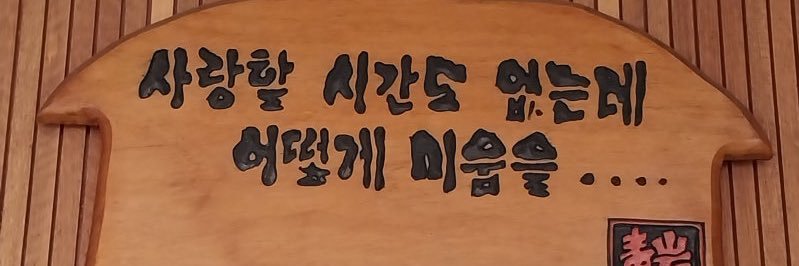 사랑할 시간도 없는데
어떻게 미움을 ....